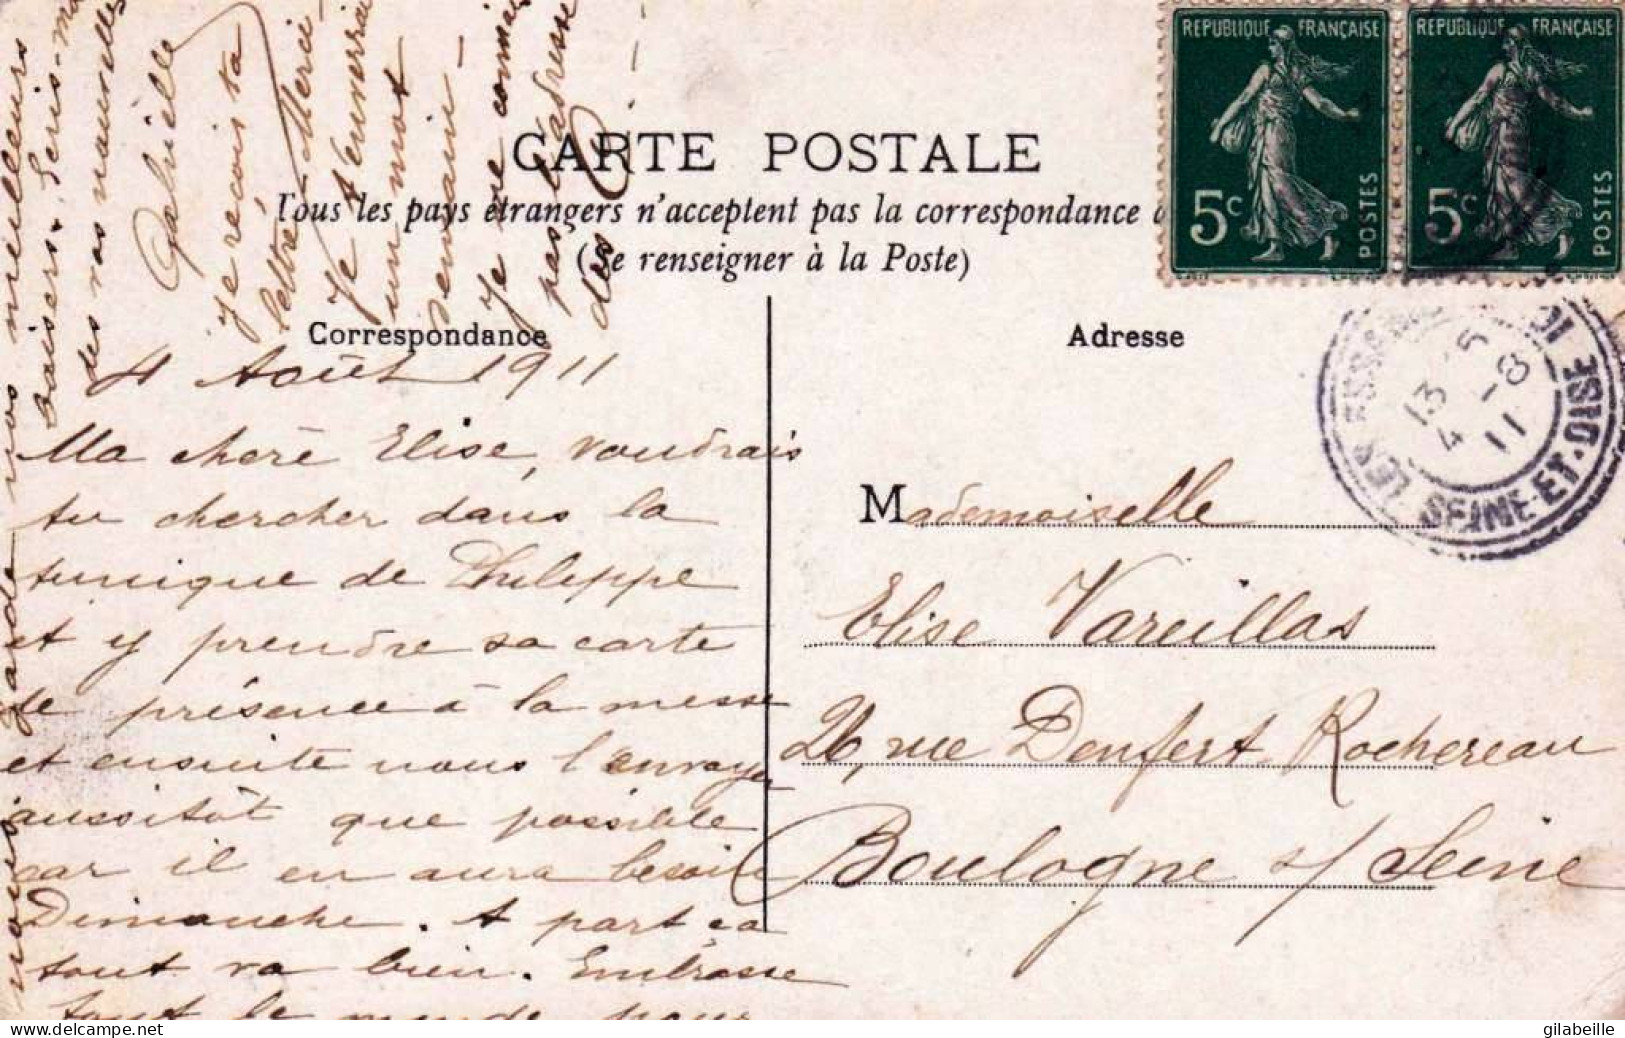 RÉPUBLIQUE FRANÇAISE
5c
POSTES
RÉPUBLIQUE FRANÇAISE
5c
POSTES
CARTE POSTALE
Tous les pays étrangers n'acceptent pas la correspondance
(Se renseigner à la Poste)
Correspondance
Adresse
4 Août 1911
Ma chère Elise, voudrais
tu chercher dans la
tunique de Philippe
et y prendre sa carte
de présence à la messe
et ensuite nous l'envoyer
aussitôt que possible
car il en aura besoin
Dimanche. A part ça
tout va bien. Embrasse
tout le monde pour
nous garde nos meilleurs
baisers. Ecris-moi
des vos nouvelles
Gabrielle
je reçois ta
lettre. Merci -
Je t'enverrai
un mot
demain -
Je ne connais
pas l'adresse
des
Mademoiselle
Elise Vareillas
26, rue Denfert-Rochereau
Boulogne s/ Seine
SEINE-ET-OISE
13
4 -8
11
gilabeille